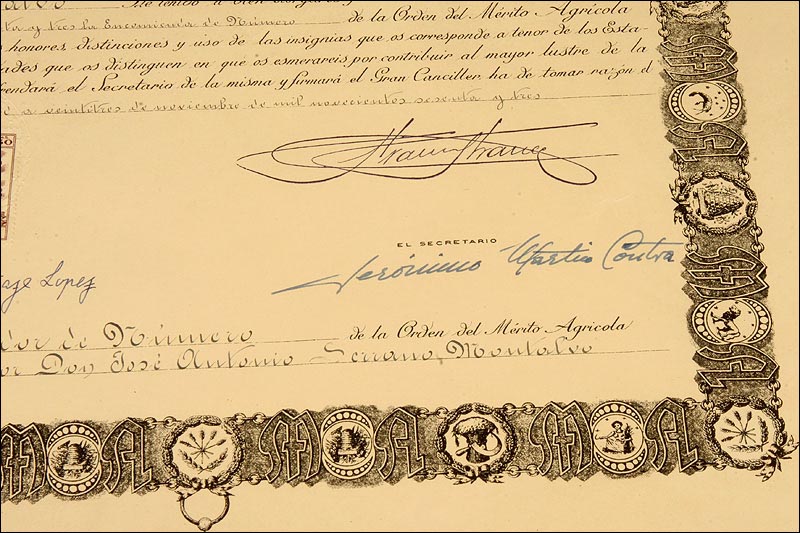 de la Orden del Mérito Agrícola
y tres la Encomienda de Número
honores, distinciones y uso de las insignias que os corresponde a tenor de los Esta-
ades que os distinguen en que os esmerareis por contribuir al mayor lustre de la
endará el Secretario de la misma y firmará el Gran Canciller, ha de tomar razón el
a veintitres de noviembre de mil novecientos sesenta y tres
50
EL SECRETARIO
Jerónimo Martín
Lopez
dor de Número de la Orden del Mérito Agrícola
or Don José Antonio Serrano Montalvo
M A M A M A